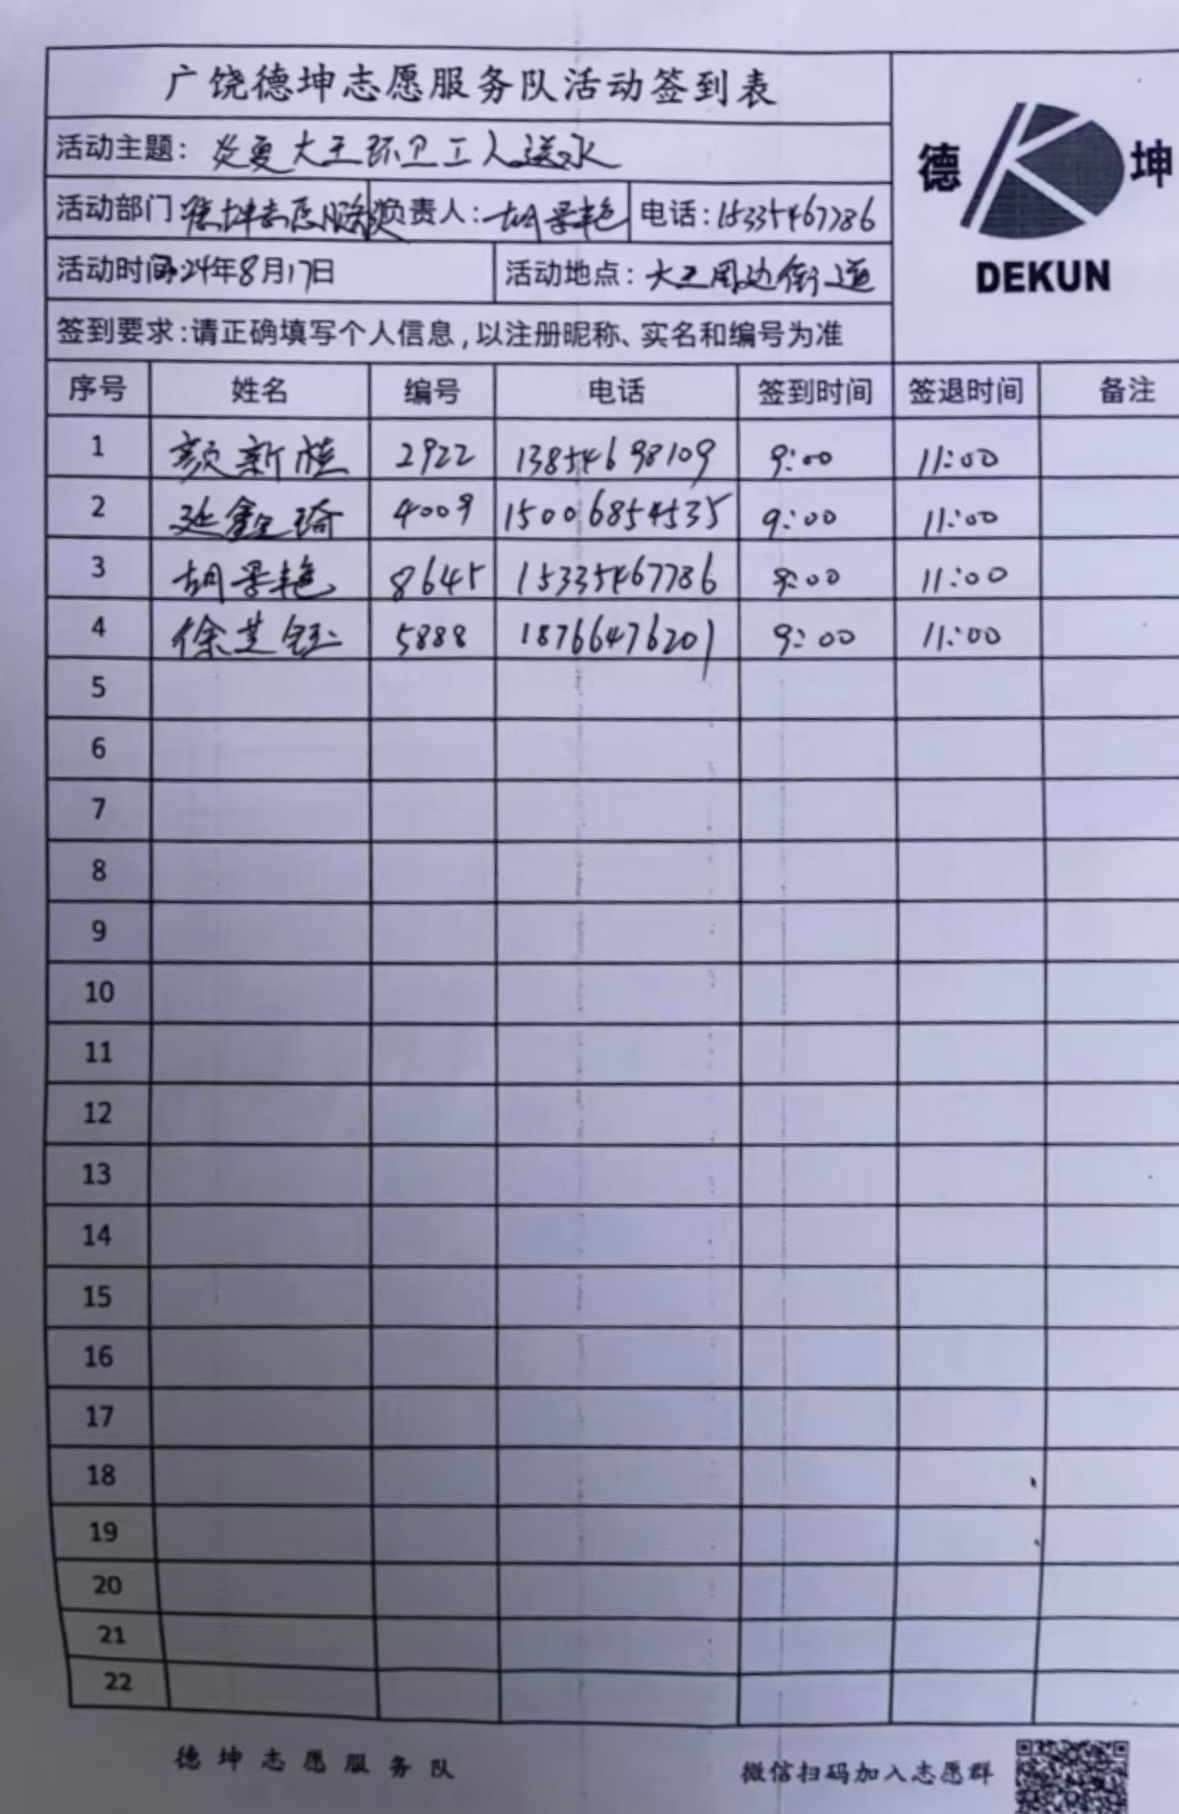 广饶德坤志愿服务队活动签到表
活动主题：炎夏大王环卫工人送水
德 坤
DEKUN
活动部门 德坤志愿服务队 负责人：胡景艳 电话：15335467786
活动时间 24年8月17日 活动地点：大王周边街道
签到要求：请正确填写个人信息，以注册昵称、实名和编号为准
序号 姓名 编号 电话 签到时间 签退时间 备注
1 颜新桂 2922 13854698109 9:00 11:00
2 延鑫琦 4009 15006854535 9:00 11:00
3 胡景艳 8645 15335467786 9:00 11:00
4 徐芝钰 5888 18766476201 9:00 11:00
5
6
7
8
9
10
11
12
13
14
15
16
17
18
19
20
21
22
德坤志愿服务队 微信扫码加入志愿群